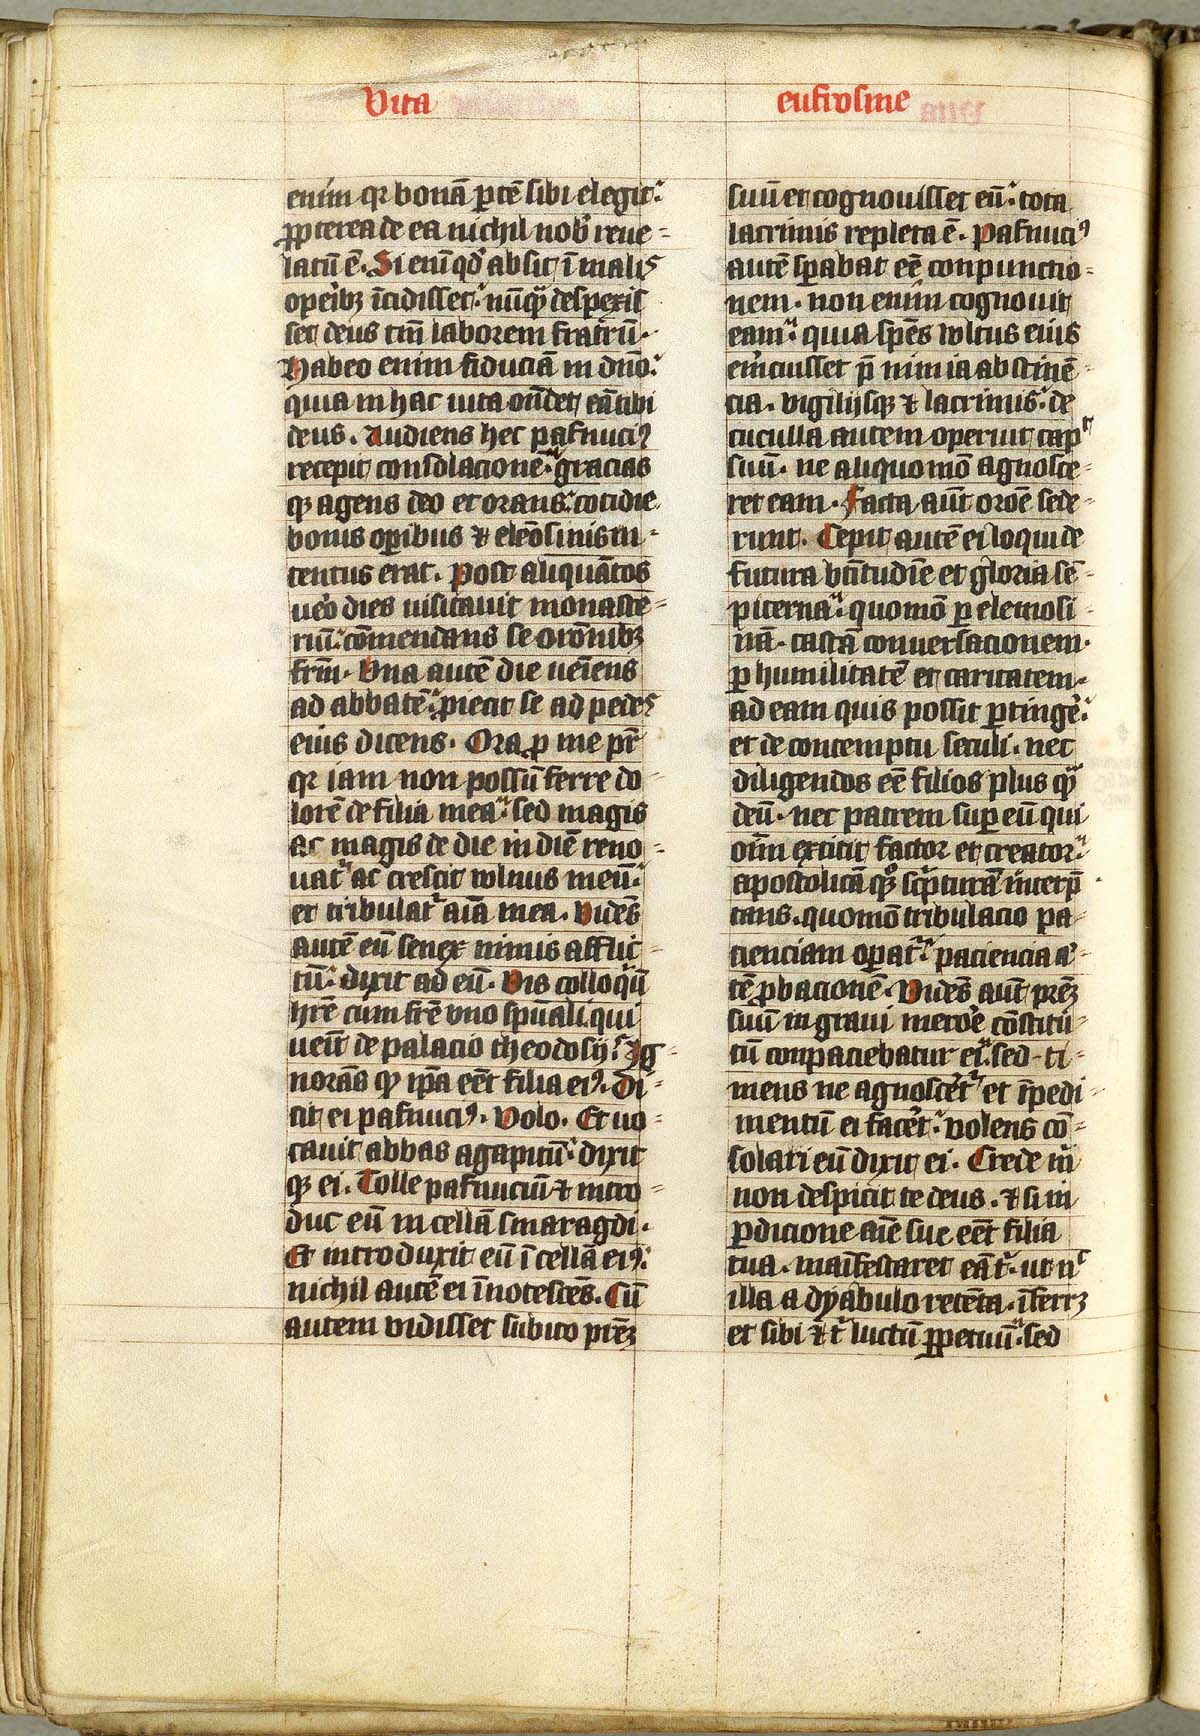 Vita eufrosine
enim qr bonā ꝑtē sibi elegit:
ꝓpterea de ea nichil nob̛ reue=
latū ē. Si enī qd̛ absit ī malis
oꝑibꝫ īcidisset: nūqͣ despexis
set deus tm̄ laborem fratrū.
Habeo enim fiduciā in dn̄o:
quia in hac uita on̄det eā tibi
deus. Audiens hec pafnuciꝰ
recepit consolacionē: gracias
qꝫ agens deo et orans: cotidie
bonis oꝑibus ⁊ eleōsinis in=
tentus erat. Post aliquātos
ue̛o dies uisitauit monastē=
riū: cōmendans se orōnibꝫ
frm̄. Vna autē die ueīens
ad abbatē: ꝓiecit se ad pedes
eius dicens. Ora ꝓ me pr̄
qr iam non possū ferre do=
lorē de filia mea: sed magis
ac magis de die in diē reno=
uatᷣ ac crescit wlnus meū:
et tribulatᷣ aīa mea. Vidēs
autē eū senex nimis afflic=
tū: dixit ad eū. Vis colloqͥū
hr̄e cum fr̄e vno spūali qui
uēit de palacio theodosij: Ig=
norās qͥ ip̄a eēt filia eiꝰ. Di=
cit ei pafnuciꝰ. Volo. Et uo=
cauit abbas agapitū: dixit
qꝫ ei. Tolle pafnuciū ⁊ intro=
duc eū in cellā smaragdi.
Et introduxit eū ī cellā eiꝰ:
nichil autē ei īnotescēs. Cū
autem vidisset subito pr̄eꝫ
suū et cognouisset eū: tota
lacrimis repleta ē. Pafnuciꝰ
autē sꝑabat eē conpunctio=
nem. non enim cognouit
eam: quia spēs wltus eius
emͣcuisset p̄ nimia abstinē=
cia. vigilijsqꝫ ⁊ lacrimis: de
cuculla autem operuit capᷣ
suū. ne aliquo mō agnosce=
ret eam. Facta aūt orōe sede=
runt. Cepit autē ei loqui de
futura bt̄itudīe et gloria sē=
piterna: quomō ꝑ elemosi=
nā. castā conuersacionem.
ꝑ humilitatē et caritatem.
ad eam quis possit ꝑtinge̛:
et de contemptu seculi. nec
diligendos eē filios plus qͣ
deū. nec patrem suꝑ eū qui
oīm extitit factor et creator:
apostolicā qꝫ sc̛pturā interp̄
tans. quomō tribulacio pa=
cienciam oꝑatᷣ: paciencia a̛=
tē ꝓbacionē. Vidēs aūt pr̄eꝫ
suū in graui merōe cōstitu=
tū conpaciebatur ei: sed ti=
mens ne agnosce̛tᷣ et īpedi=
mentū ei face̛t: volens cō=
solari eū dixit ei. Crede mͥ
non despicit te deus. ⁊ si in
ꝑdicione aīe sue eēt filia
tua. maīfestaret eā tᷣ. ut nᷤ
illa a dyabulo retēta. īferrꝫ
et sibi ⁊ tᷣ luctū ꝑpetuū: sed